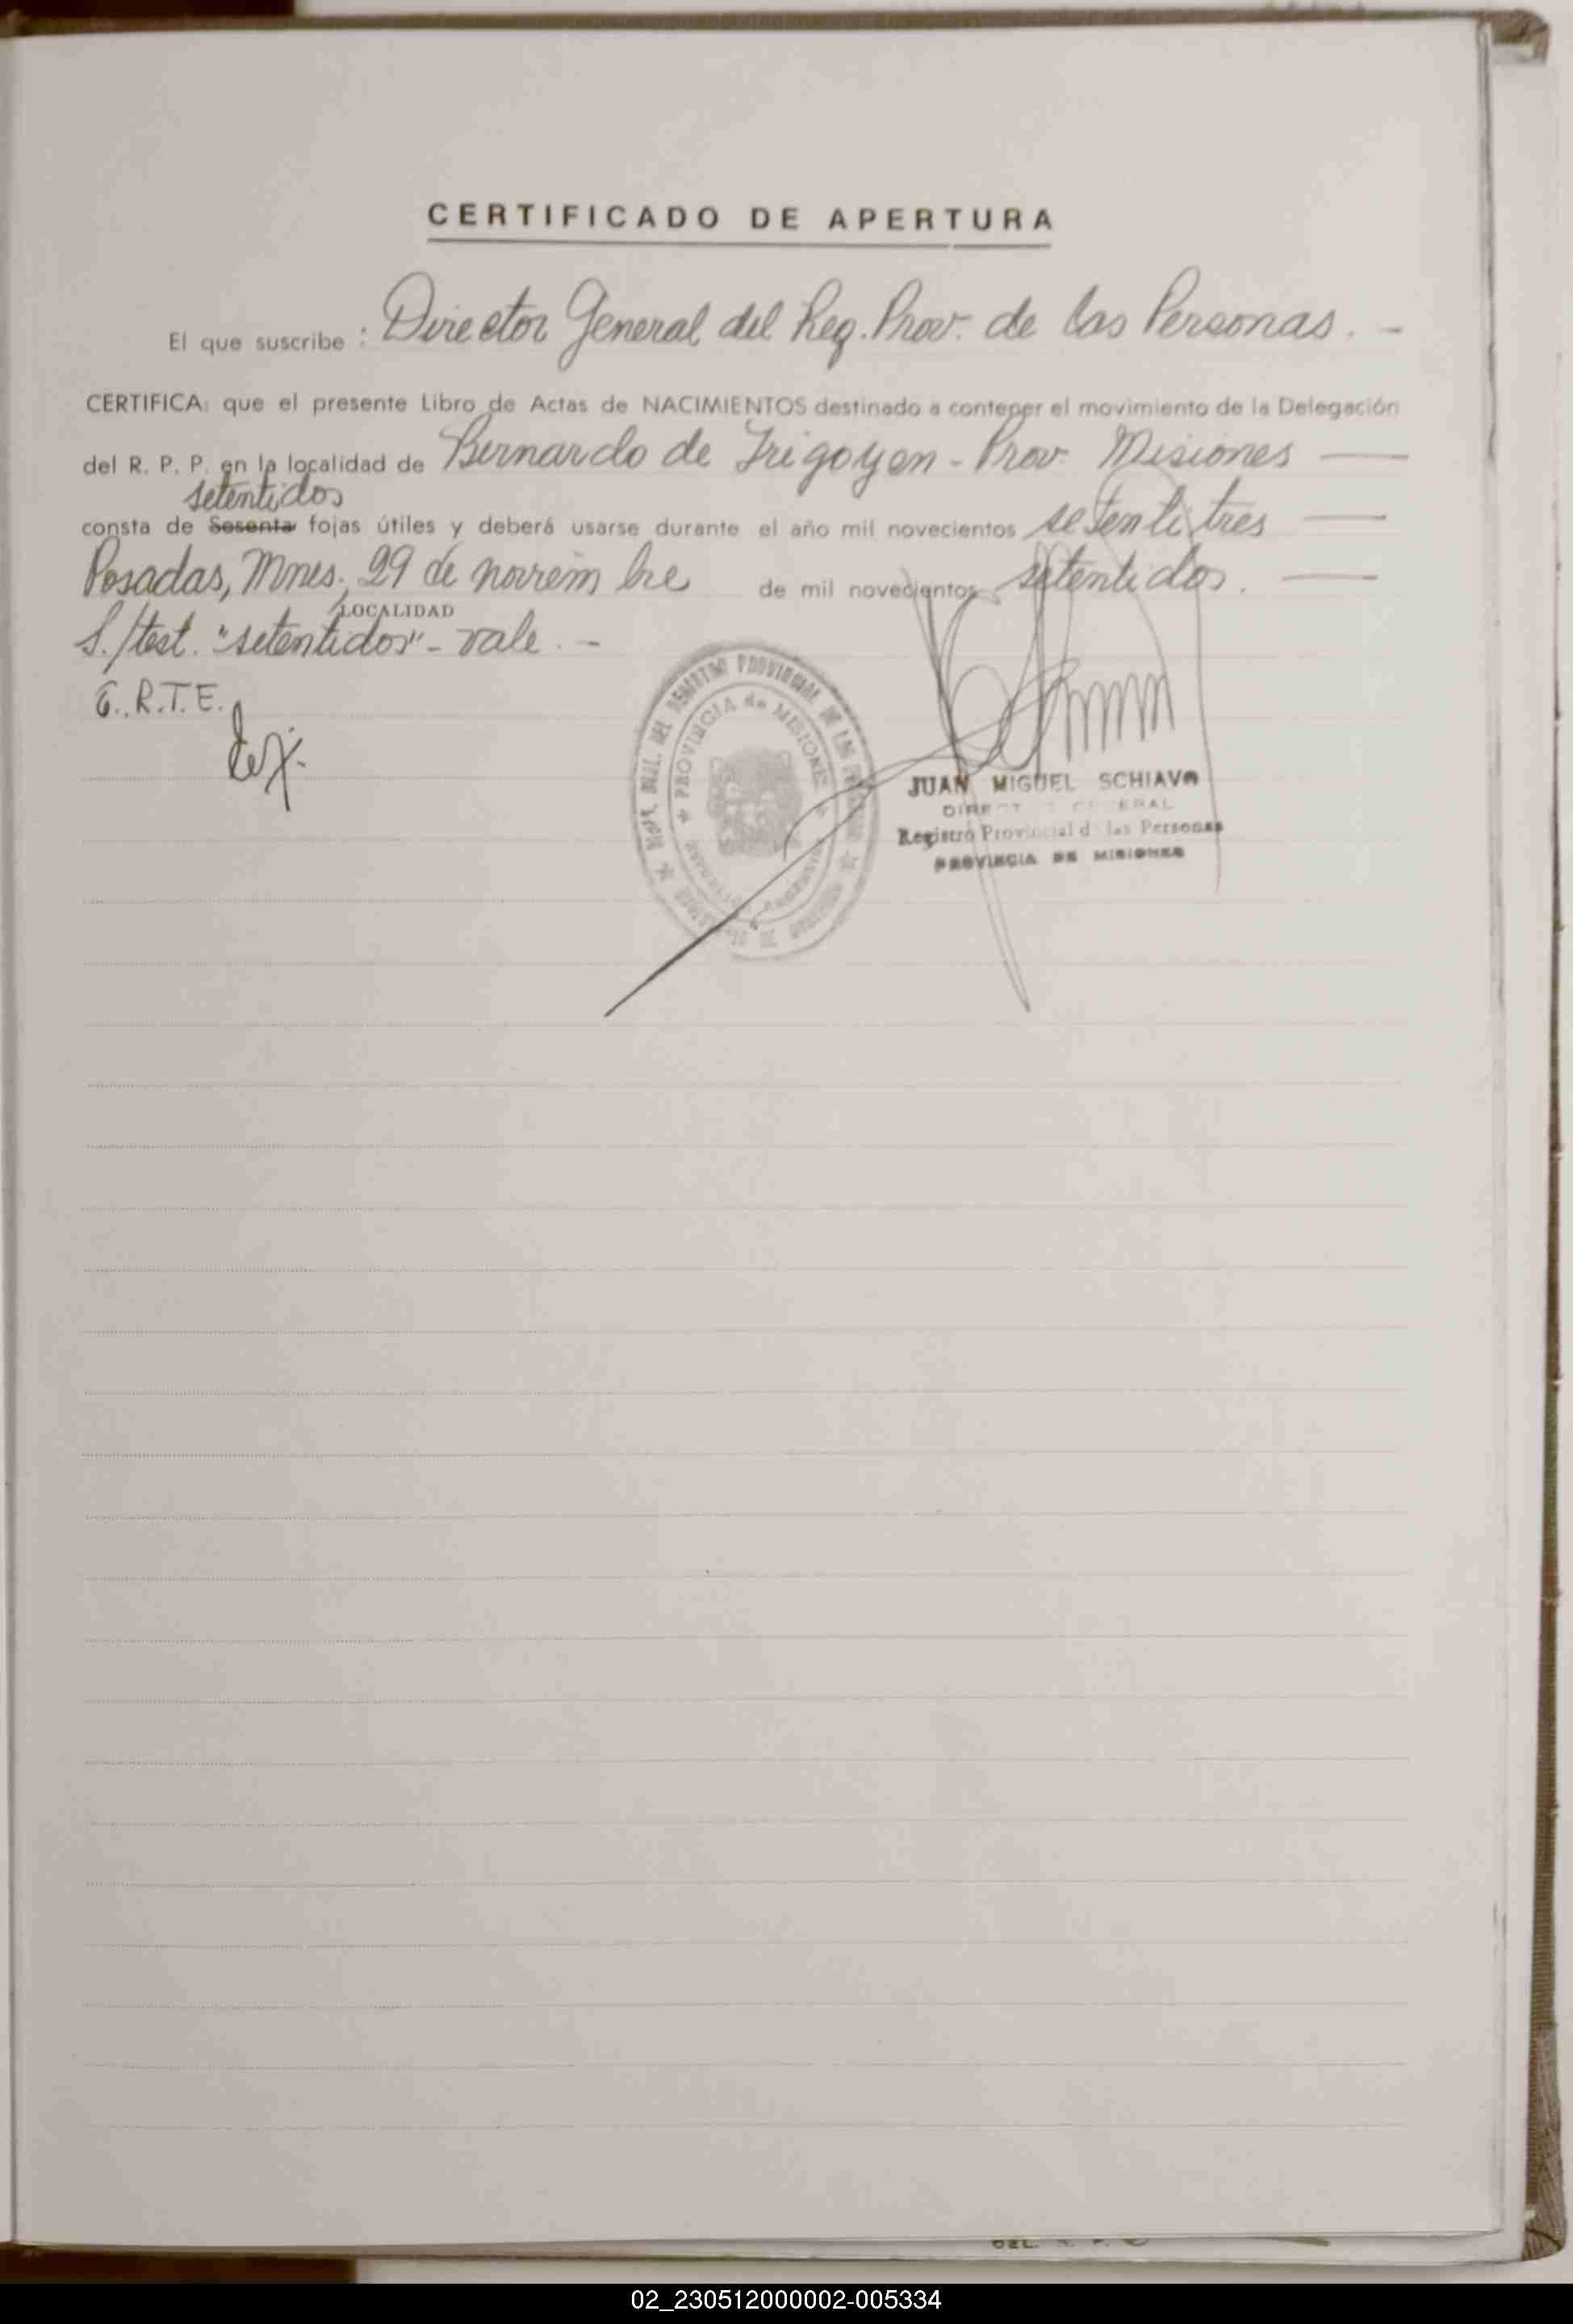 CERTIFICADO DE APERTURA
El que suscribe : Director General del Reg. Prov. de las Personas. -
CERTIFICA: que el presente Libro de Actas de NACIMIENTOS destinado a contener el movimiento de la Delegación
del R. P. P. en la localidad de Bernardo de Irigoyen - Prov. Misiones
setentidos
consta de Sesenta fojas útiles y deberá usarse durante el año mil novecientos setentitres
Posadas, Mnes. 29 de noviembre de mil novecientos setentidos.
LOCALIDAD
S./test. "setentidos" - vale. -
R.T.E.
PROVINCIA de MISIONES
JUAN MIGUEL SCHIAVO
Registro Provincial de las Personas
PROVINCIA DE MISIONES
02_230512000002-005334